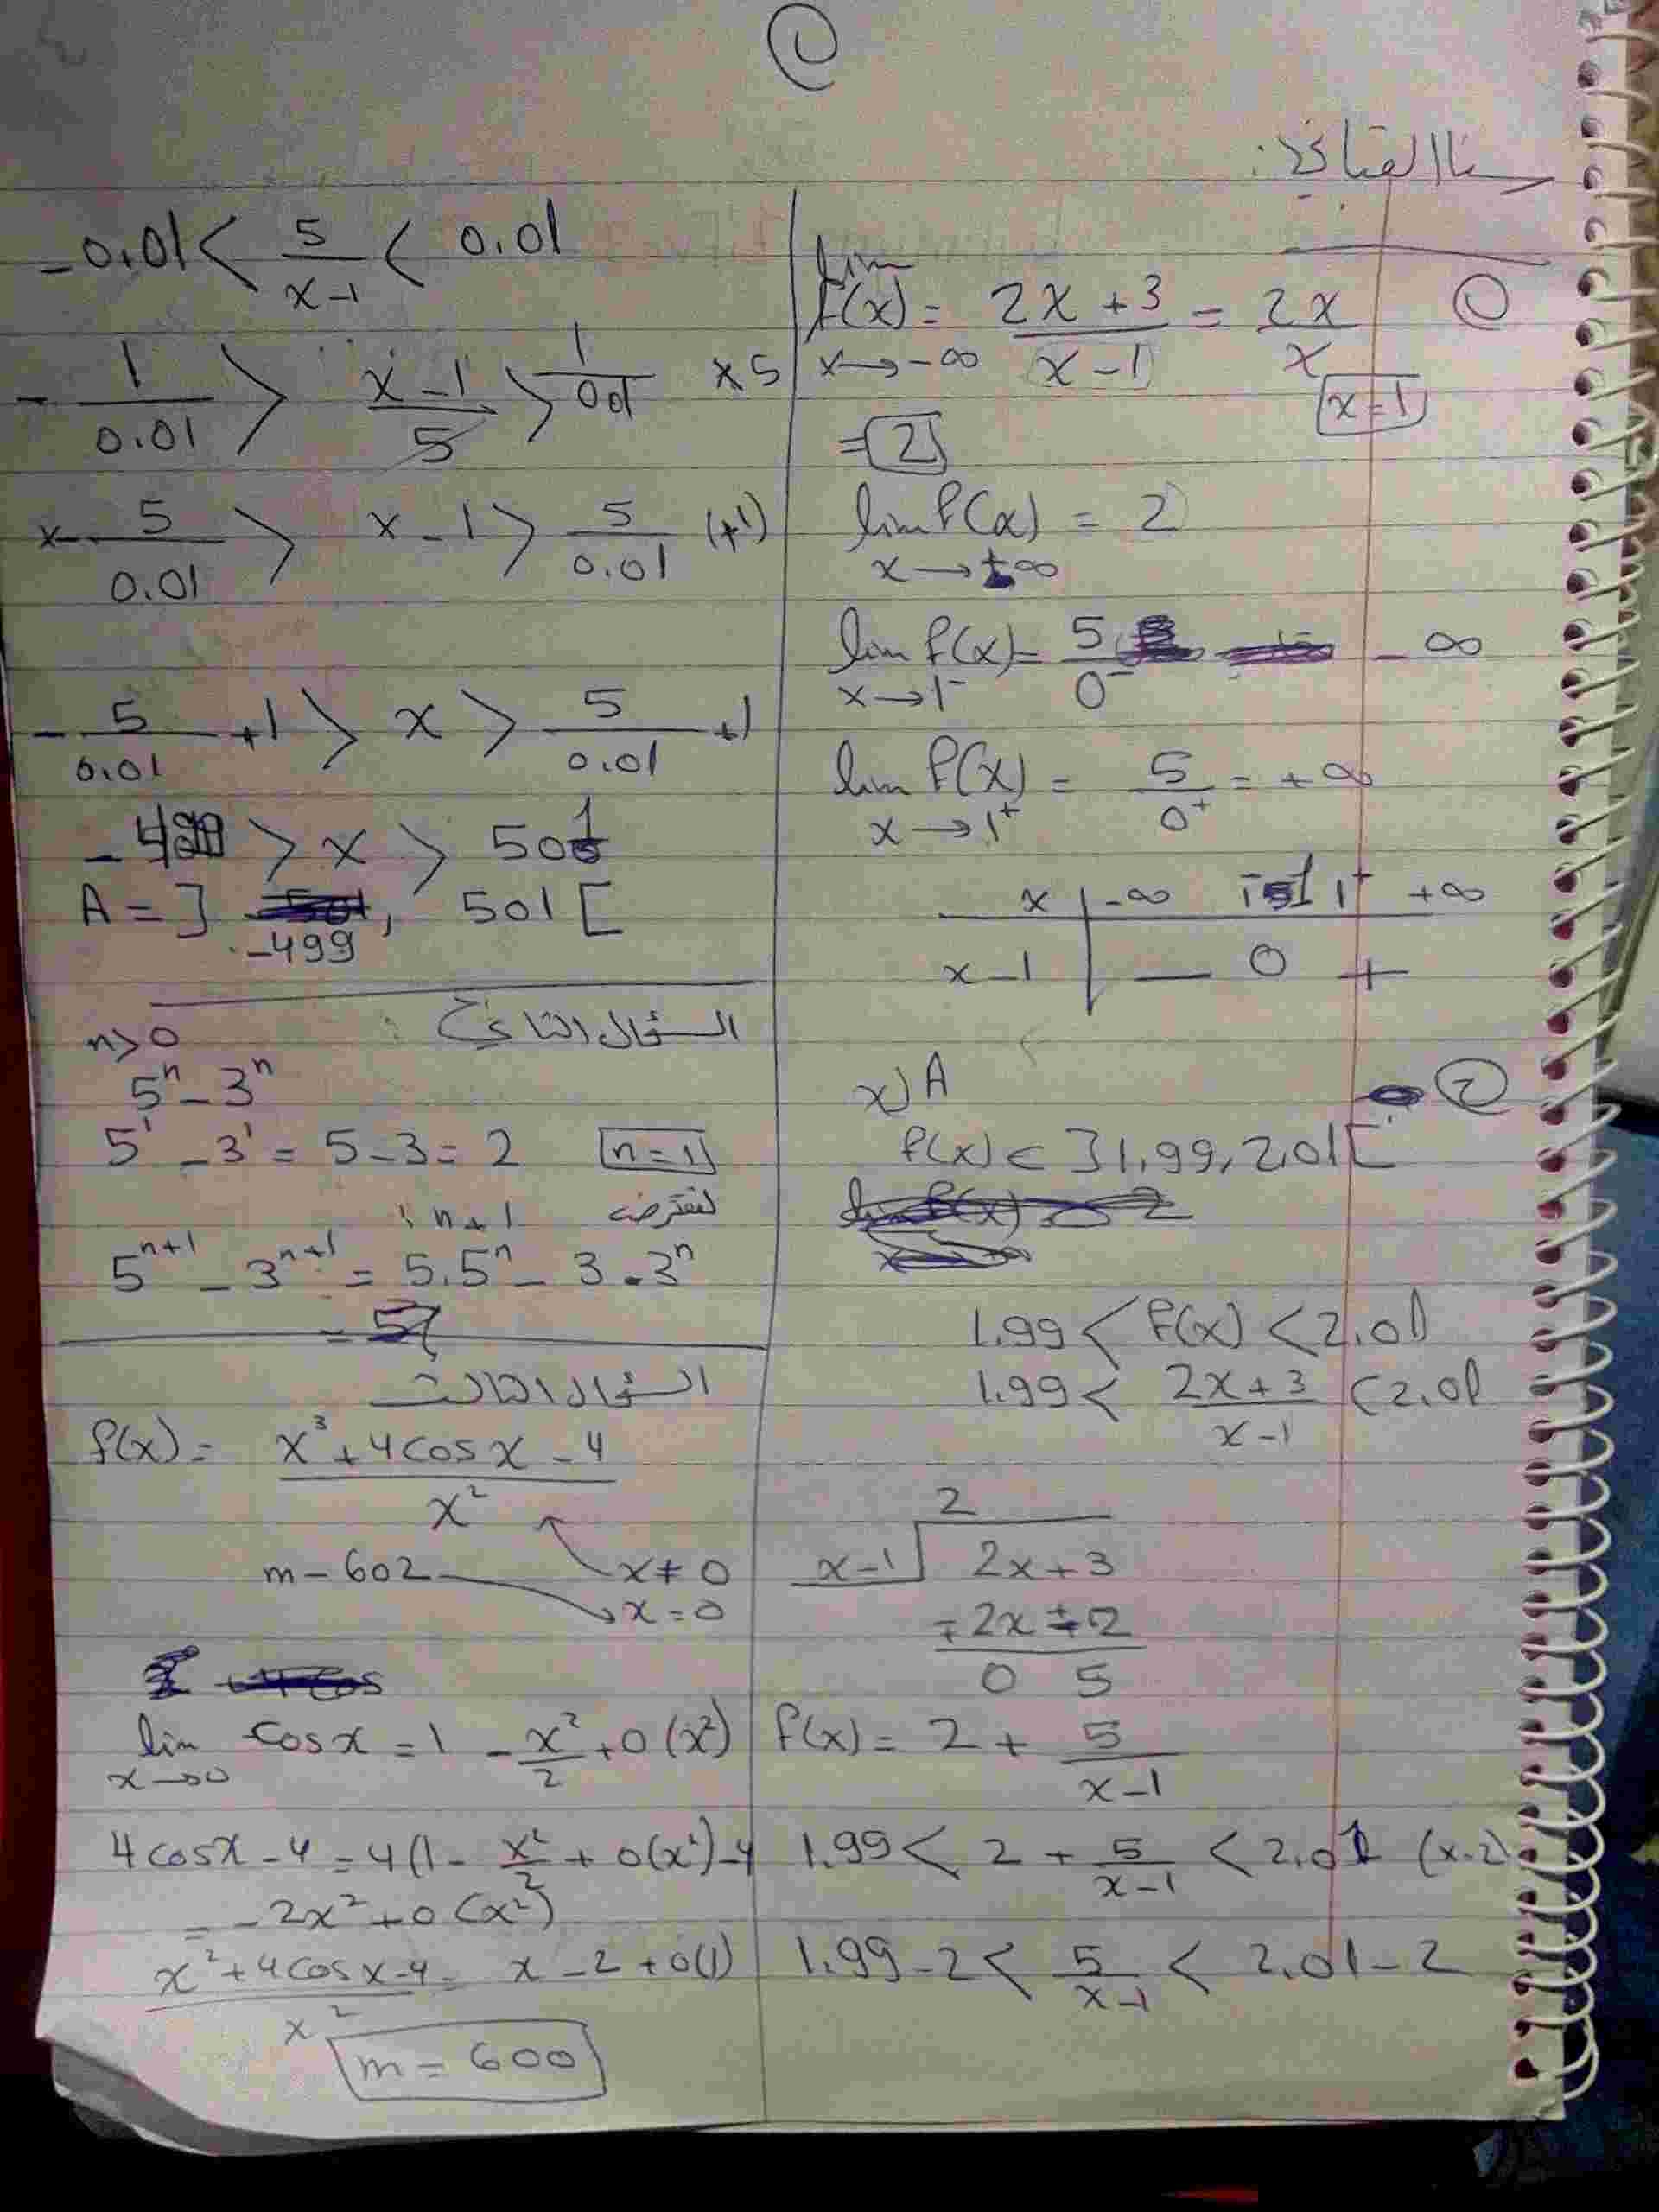 ①
سنا القباني:
lim f(x) = (2x+3)/(x-1) = 2x/x ①
x→-∞ x=1
= 2
lim f(x) = 2
x→+∞
lim f(x) = 5/0⁻ - ∞
x→1⁻
lim f(x) = 5/0⁺ = +∞
x→1⁺
x | -∞ 1⁻ 1 1⁺ +∞
x-1 | — 0 +
②
x⟩A
f(x) ∈ ]1.99, 2.01[
1.99 < f(x) < 2.01
1.99 < (2x+3)/(x-1) < 2.01
2
x-1 2x+3
2x 2
0 5
f(x) = 2 + 5/(x-1)
1.99 < 2 + 5/(x-1) < 2.01 (x-2)
1.99-2 < 5/(x-1) < 2.01-2
-0.01 < 5/(x-1) < 0.01
-1/0.01 > (x-1)/5 > 1/0.01 ×5
-5/0.01 > x-1 > 5/0.01 (+1)
-5/0.01 +1 > x > 5/0.01 +1
-499 > x > 501
A = ]-499, 501[
السؤال الثاني:
n>0
5ⁿ - 3ⁿ
5¹ - 3¹ = 5-3 = 2 n=1
لنفترض n+1
5ⁿ⁺¹ - 3ⁿ⁺¹ = 5.5ⁿ - 3.3ⁿ
السؤال الثالث
f(x) = (x³+4cosx-4)/x²
m-602 x≠0
x=0
lim cosx = 1 - x²/2 + 0(x²)
x→0
4cosx-4 = 4(1 - x²/2 + 0(x²)-4
= -2x²+0(x²)
(x²+4cosx-4)/x² = x-2+0(1)
m = 600